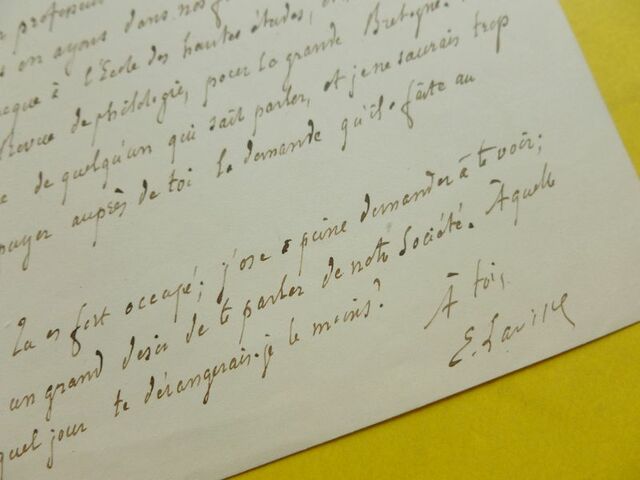 professeur
en ayons dans nos
à l'Ecole des hautes études,
Revue de philologie, pour la grande Bretagne.
de quelqu'un qui sait parler, et je ne saurais trop
puyer auprès de toi la demande qu'il fait au
Tu es fort occupé; j'ose à peine demander à te voir;
un grand désir de te parler de notre Société. À quelle
quel jour te dérangerais-je le moins?
À toi,
E. Lavisse